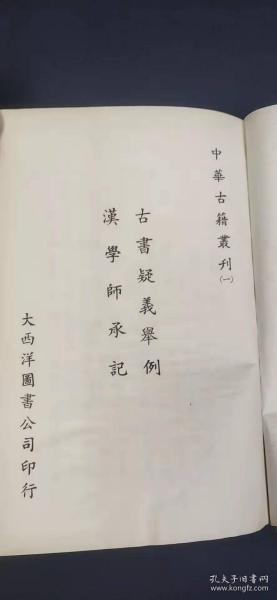 中華古籍叢刊(一)
古書疑義舉例
漢學師承記
大西洋圖書公司印行
孔夫子旧书网